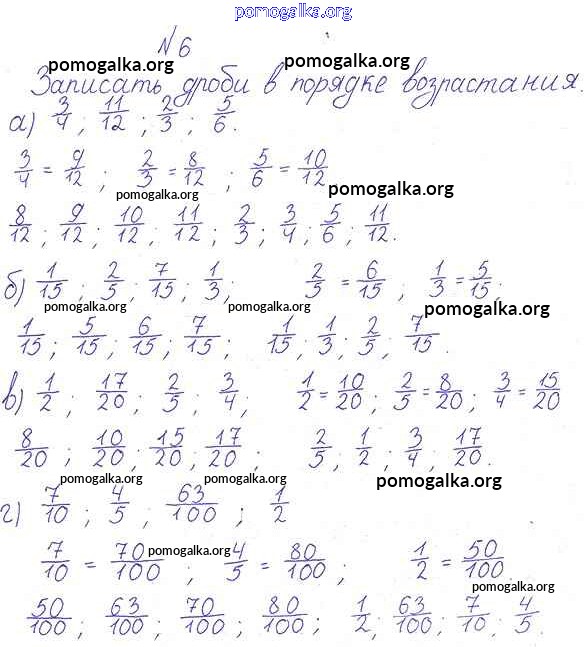 pomogalka.org
№6
pomogalka.org pomogalka.org
Записать дроби в порядке возрастания.
а) 3/4; 11/12; 2/3; 5/6.
3/4 = 9/12; 2/3 = 8/12; 5/6 = 10/12
pomogalka.org pomogalka.org
8/12; 9/12; 10/12; 11/12; 2/3; 3/4; 5/6; 11/12.
б) 1/15; 2/5; 7/15; 1/3; 2/5 = 6/15; 1/3 = 5/15;
pomogalka.org pomogalka.org pomogalka.org
1/15; 5/15; 6/15; 7/15; 1/15; 1/3; 2/5; 7/15.
в) 1/2; 17/20; 2/5; 3/4; 1/2 = 10/20; 2/5 = 8/20; 3/4 = 15/20
8/20; 10/20; 15/20; 17/20; 2/5; 1/2; 3/4; 17/20.
pomogalka.org pomogalka.org pomogalka.org
г) 7/10; 4/5; 63/100; 1/2
7/10 = 70/100; 4/5 = 80/100; 1/2 = 50/100
pomogalka.org
pomogalka.org
50/100; 63/100; 70/100; 80/100; 1/2; 63/100; 7/10; 4/5.